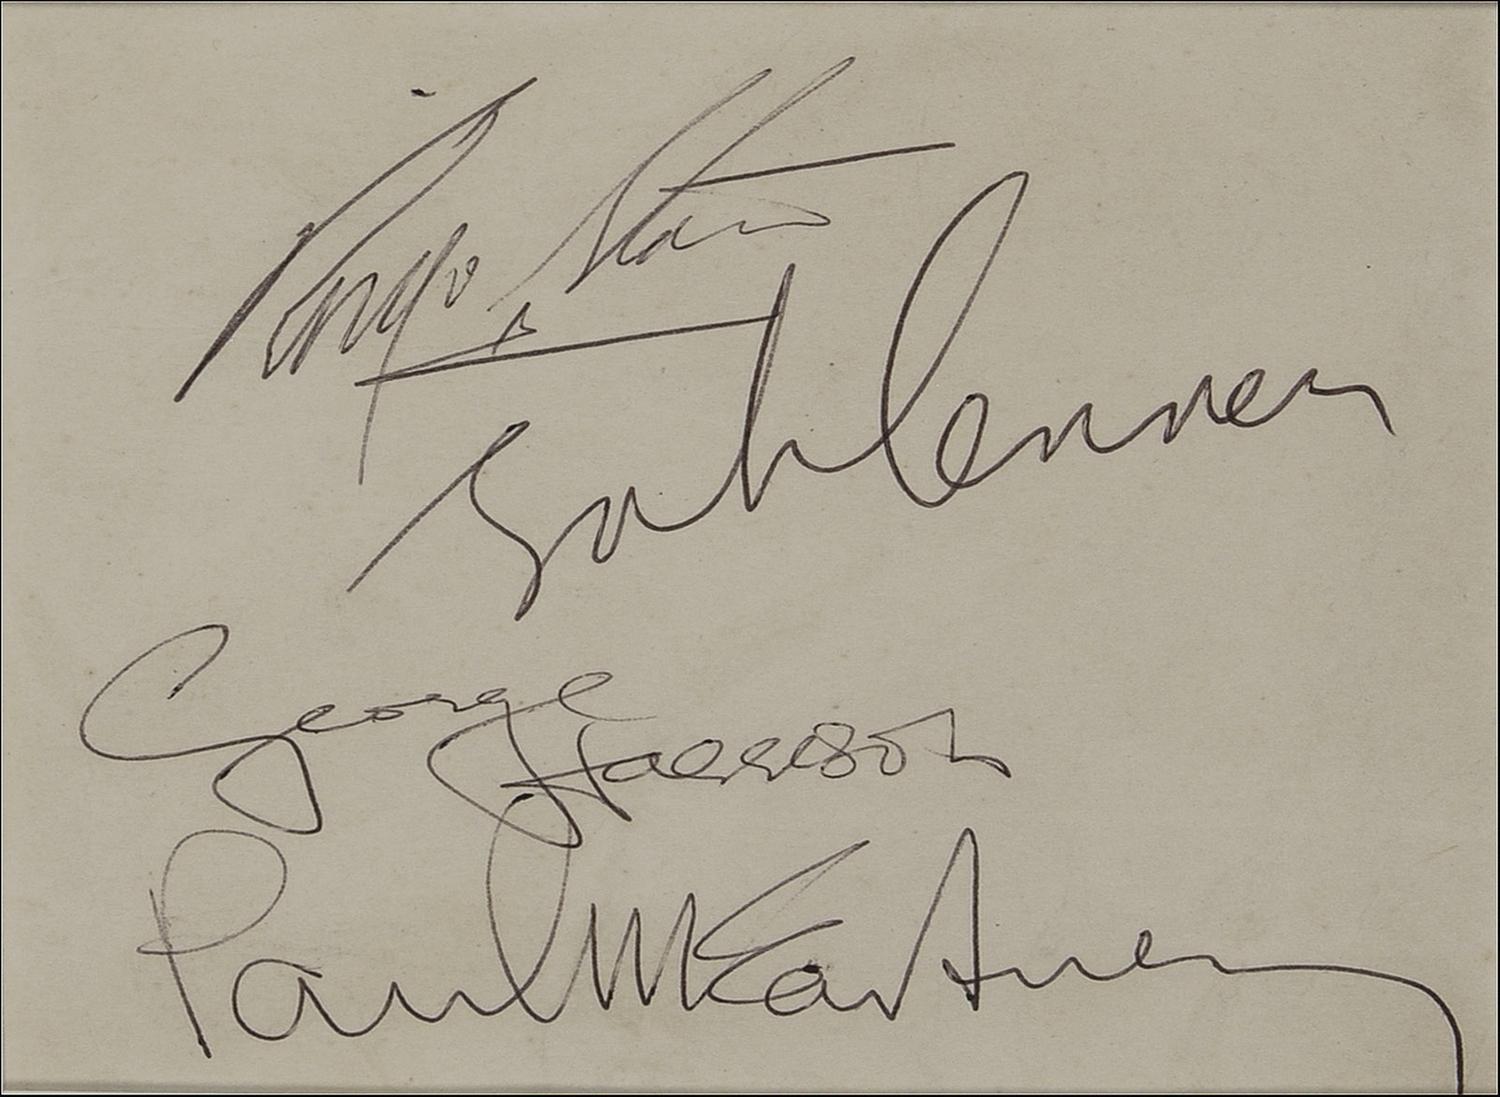 Ringo Starr
John Lennon
George Harrison
Paul McCartney